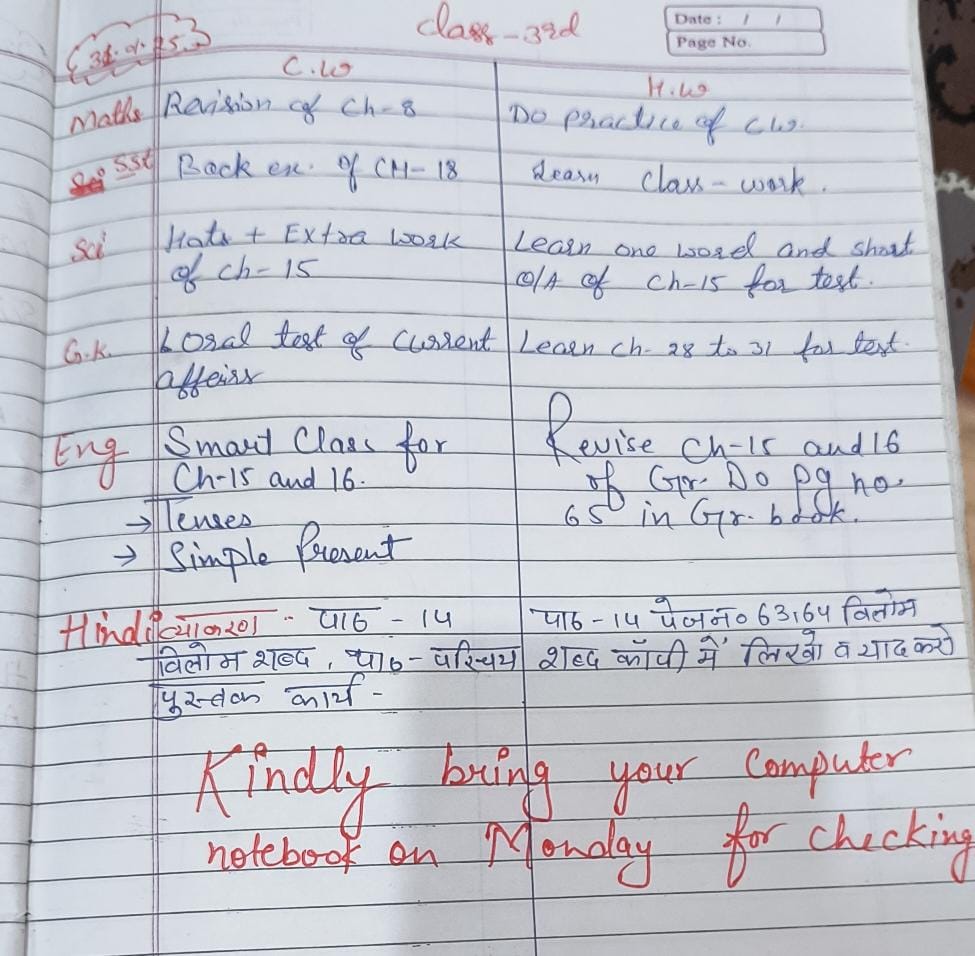 Class - 3rd
Date : / /
Page No.
31.01.25
C.W
H.W
Maths Revision of Ch-8
Do practice of C.W.
SSt Back ex. of CH-18
Learn Class-work.
Sci Hots + Extra work
of ch-15
Learn one word and short
Q/A of Ch-15 for test.
G.K. Loral test of Current
affeirs
Learn ch- 28 to 31 for test.
Eng Smart Class for
Ch-15 and 16.
→ Tenses
→ Simple Present
Revise Ch-15 and 16
of Gr. Do pg no.
65 in Gr. book.
Hindi व्याकरण - पाठ - 14
विलोम शब्द, पाठ - परिचय
पुस्तक कार्य -
पाठ - 14 पेज नं० 63,64 विलोम
शब्द कॉपी में लिखो व याद करो
Kindly bring your Computer
notebook on Monday for checking